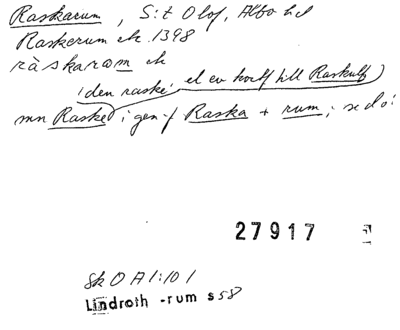 Raskarum, S:t Olof, Albo hd
Raskerum etc. 1398
ràskaram etc
('den raske', el ev kortf till Raskulf)
mn Raske i gen-f Raska + rum; se d.o:
27917
Sk O A 1:101
Lindroth -rum s 58